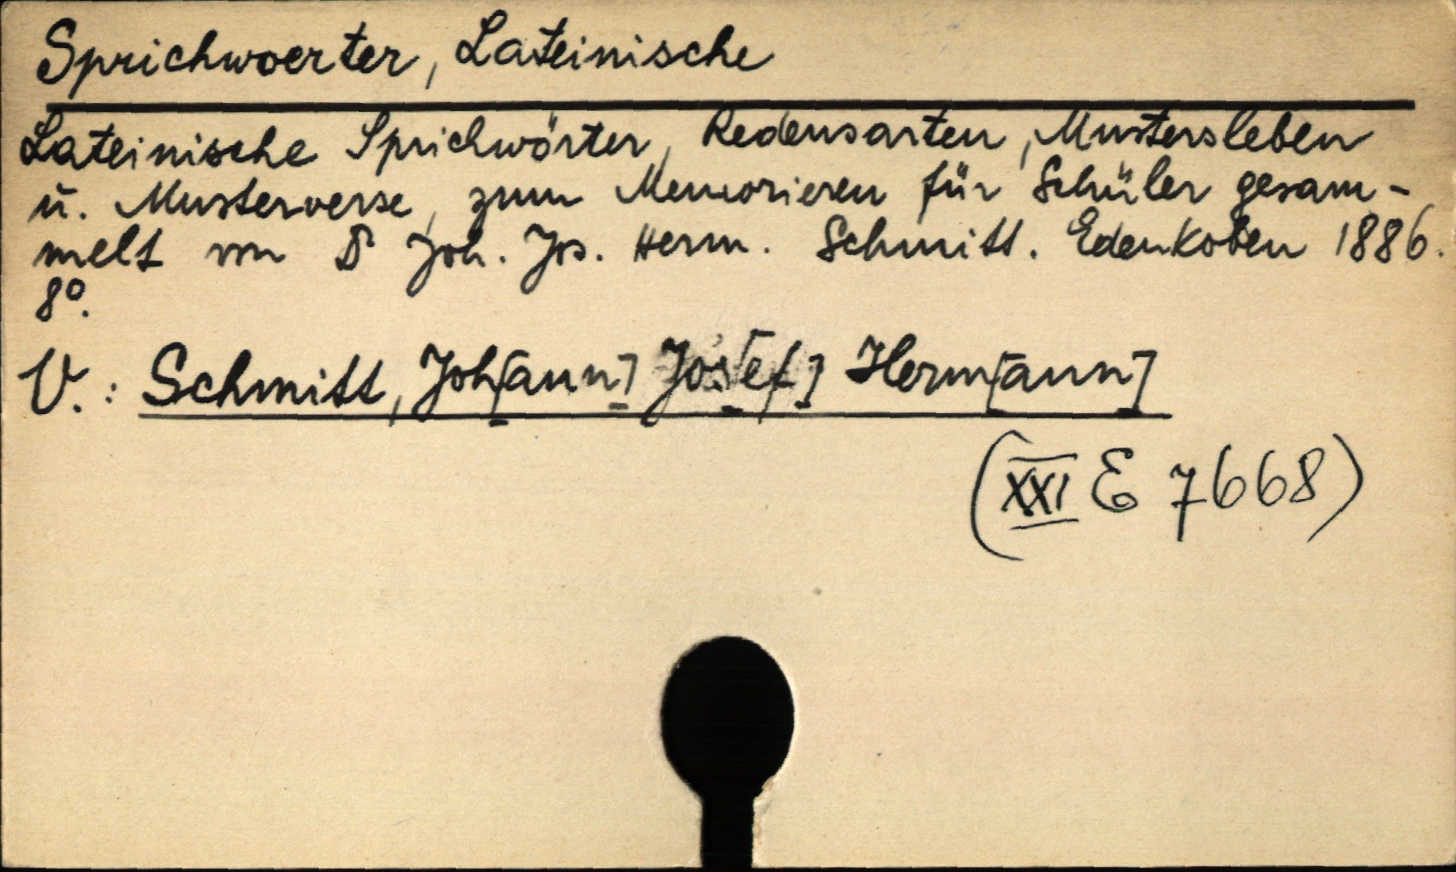 Sprichwoerter, Lateinische
Lateinische Sprichwörter, Redensarten, Mustersleben
u. Musterverse, zum Memorieren für Schüler gesam-
melt von Dr Joh. Jos. Herm. Schmitt. Edenkoben 1886.
8°.
V.: Schmitt, Joh[ann] Jos[ef] Herm[ann]
(XXI E 7668)